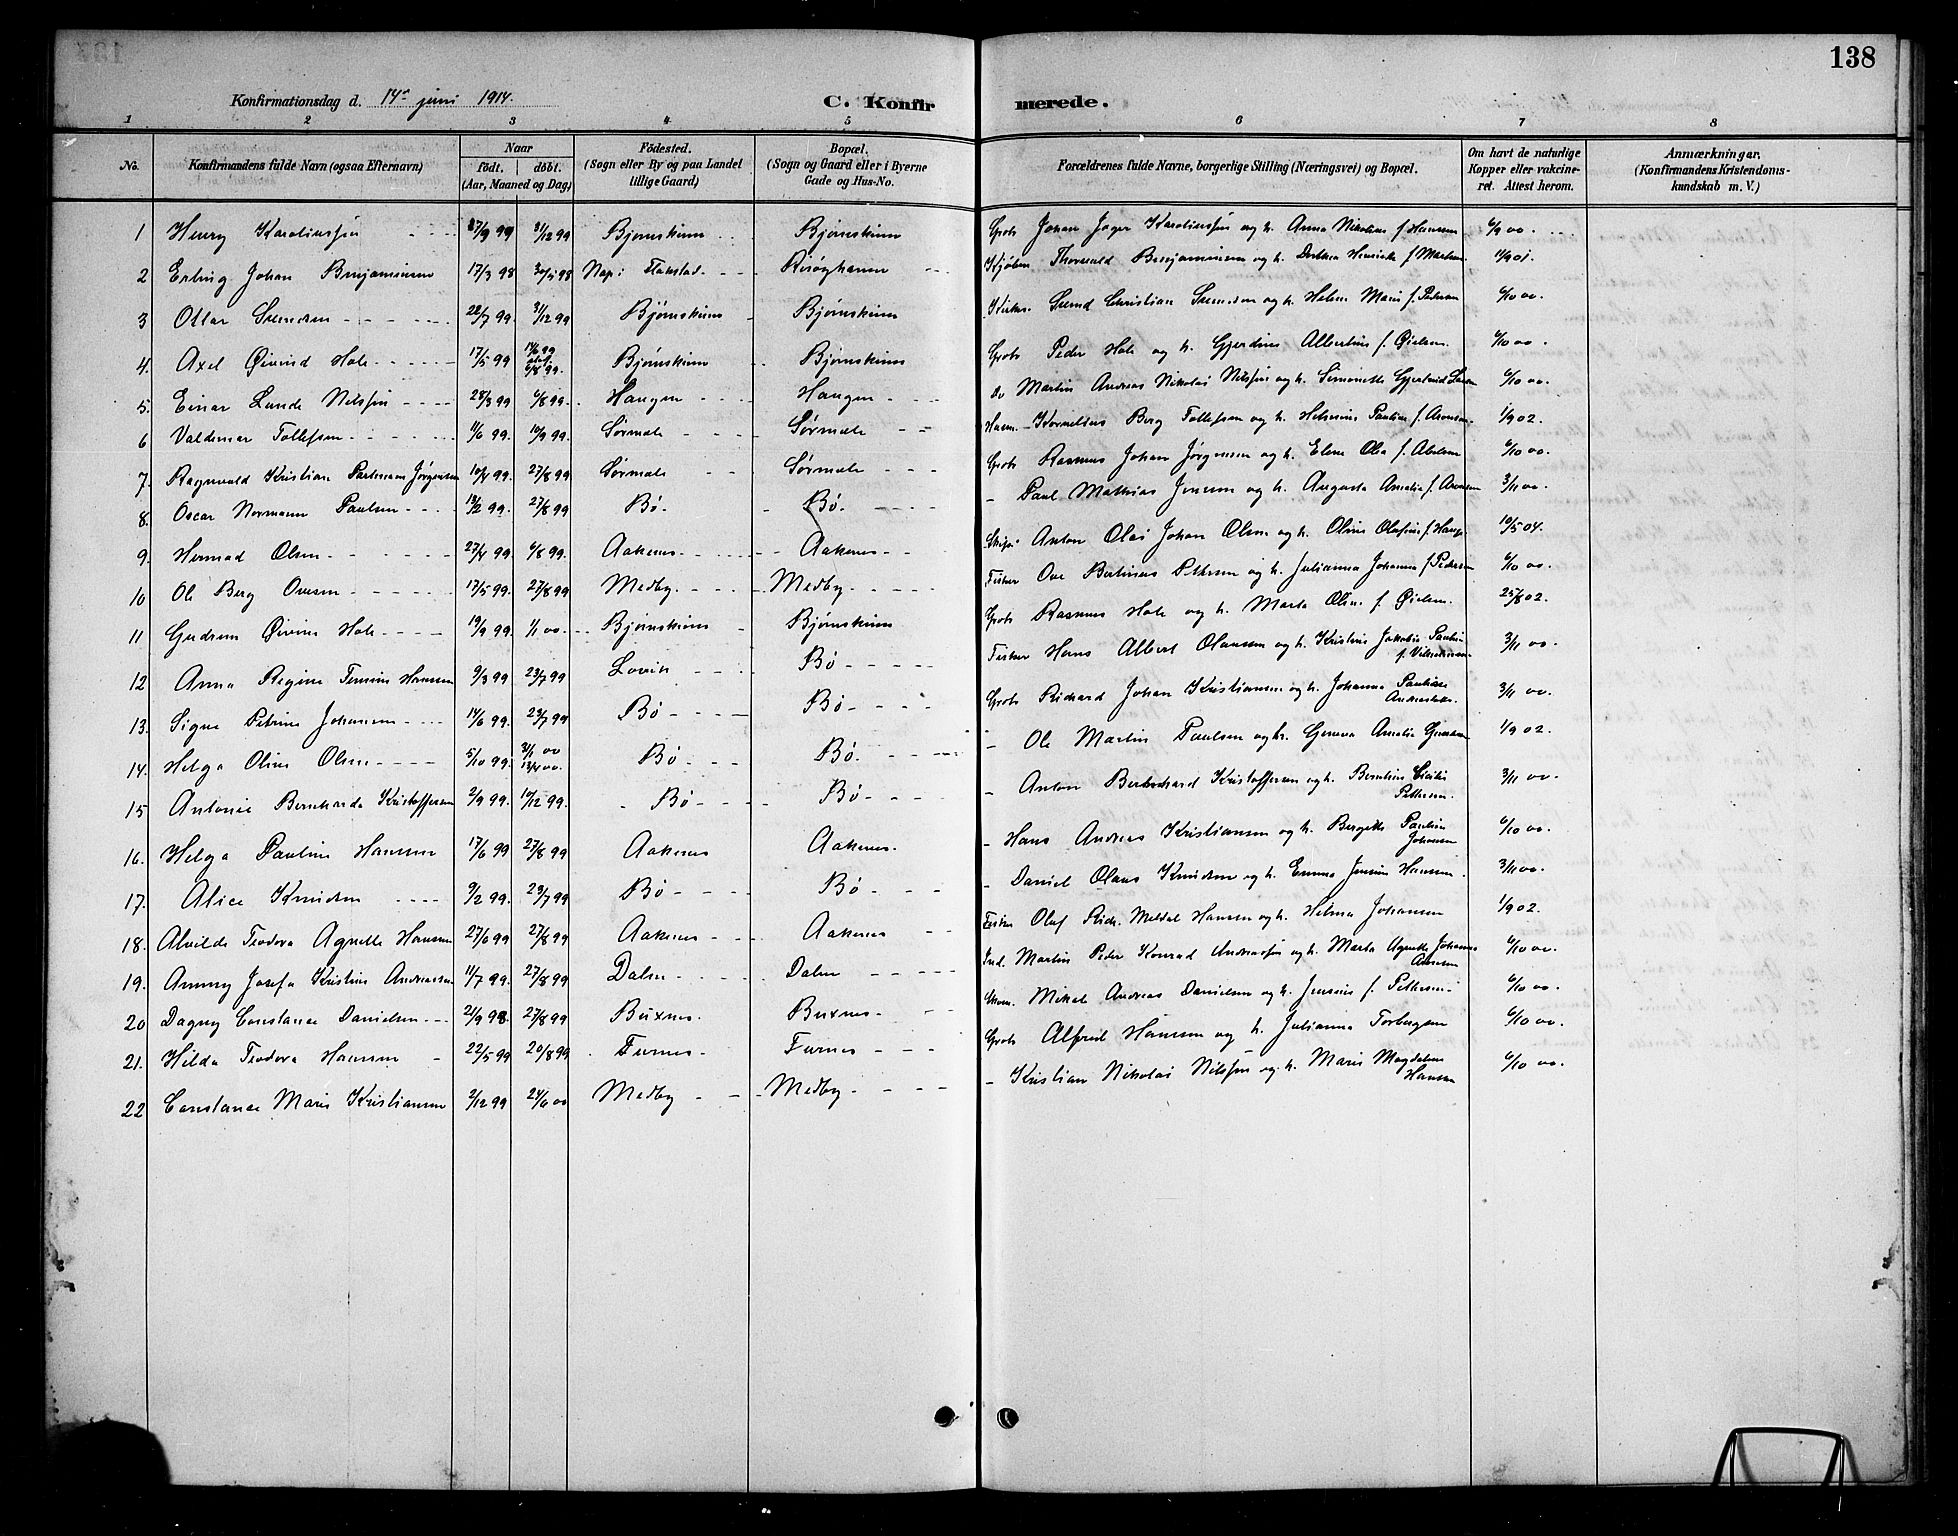 138
Konfirmationsdag d. 14de juni 1914.
C. Konfirmerede.
1 2 3 4 5 6 7 8
No. Konfirmandens fulde Navn (ogsaa Efternavn) Naar født. døbt. (Aar, Maaned og Dag) Fødested. (Sogn eller By og paa Landet tillige Gaard) Bopæl. (Sogn og Gaard eller i Byerne Gade og Hus-No. Forældrenes fulde Navne, borgerlige Stilling (Næringsvei) og Bopæl. Om havt de naturlige Kopper eller vakcineret. Attest herom. Anmærkninger. (Konfirmandens Kristendomskundskab m. V.)
1 Henry Karoliussen 27/9 99 31/12 99 Bjørnskinn Bjørnskinn Johan Jæger Karoliussen og h. Anna Nikoline f. Hansen 6/9 00.
2 Erling Johan Benjaminsen 17/3 98 30/5 98 Nap i Flakstad Risøyhavn Kjøbm. Thorvald Benjaminsen og h. Dorthea f. 11/9 01.
3 Ottar Svendsen 22/7 99. 31/12 99 Bjørnskinn Bjørnskinn Svend Christian Svendsen og h. Helene Marie f. Pedersen 6/10 00.
4. Axel Øivind Hole 17/5 99 Bjørnskinn Bjørnskinn Gbr. Peder Hole og h. Gjerdine Albertine f. Øielsen. 6/10 00.
5. Einar Lunde Nilssen 28/3 99 6/8 99. Haugen Haugen Do Martin Andreas Nikolai Nilssen og h. Simonette Gjertrud Larsen 6/10 00.
6 Valdemar Tollefsen 11/6 99. 10/9 99. Sørmele Sørmele Kornelius Berg Tollefsen og h. Helmine Pauline f. Aronsen 1/9 02.
7. Ragnvald Kristian Jørgensen 10/4 99. 27/8 99. Sørmele Sørmele Gbr. Rasmus Johan Jørgensen og h. Elene Olea f. Abelsen 6/10 00.
8. Oscar Normann Paulsen 13/2 99. 27/8 99 Bø. Bø. - Paul Mathias Jensen og h. Augusta Amalia f. Aronsen 3/11 00.
9. Hermod Olsen 27/4 99 6/8 99. Aakenes Aakenes Anton Olai Johan Olsen og h. Oline Olufine f. 10/5 04.
10 Ole Berg Ovesen 17/5 99. 27/8 99 Medby. Medby. Fisker Ove Bertinus Pettersen og h. Julianna Johanna f. Pedersen 6/10 00.
11 Gudrun Øivine Hole 19/9 99 1/1 00. Bjørnskinn Bjørnskinn Gbr. Rasmus Hole og h. Marta Oline f. Øielsen. 25/8 02.
12 Anna Regine Hansen 9/3 99 23/7 99 Lovik Bø Fisker Hans Albert Olausen og h. Kristine Jakobie Pauline f. Vilhelmsen 3/11 00.
13. Signe Petrine Johansen 14/6 99. 23/7 99 Bø Bø Gbr. Richard Johan Kristiansen og h. Johanna 3/11 00.
14. Helga Oline Olsen 5/10 99. Bø Bø. - Ole Martin Paulsen og h. Geneva Amalia 1/9 02.
15 Antonie Bernharda Kristoffersen 2/9 99. 10/12 99. Bø Bø - Anton Bernhard Kristoffersen og h. Berntine Pettersen. 3/11 00.
16. Helga Pauline Hansen 17/6 99 27/8 99 Aakenes Aakenes. - Hans Andreas Kristiansen og h. Bergette Pauline Johansen 6/10 00.
17. Alice Knudsen 9/2 99. 23/7 99 Bø Bø - Daniel Olaus Knudsen og h. Emma Jensine Hansen. 3/11 00.
18. Alvilde Teodora Agnette Hansen 27/6 99 27/8 99 Aakenes Aakenes Fisker Oluf Rich. Meldal Hansen og h. Helma Johansen 1/9 02.
19. Ammy Josefa Kristine Andreassen 11/7 99. 27/8 99 Dalen Dalen Ind. Martin Peder Konrad Andreassen og h. Marta Agnette Johanna 6/10 00.
20 Dagny Constance Danielsen 21/9 98. 27/8 99 Buxnes. Buxnes. Mikal Andreas Danielsen og h. Jensine f. Pettersen 6/10 00.
21. Hilda Teodora Hansen 22/5 99 20/8 99 Furnes. Furnes Gbr. Alfred Hansen og h. Julianna Torbergsen 6/10 00.
22 Constance Marie Kristiansen 2/12 99 24/6 00 Medby Medby. - Kristian Nikolai Nilssen og h. Marie Magdalene Hansen 6/10 00.